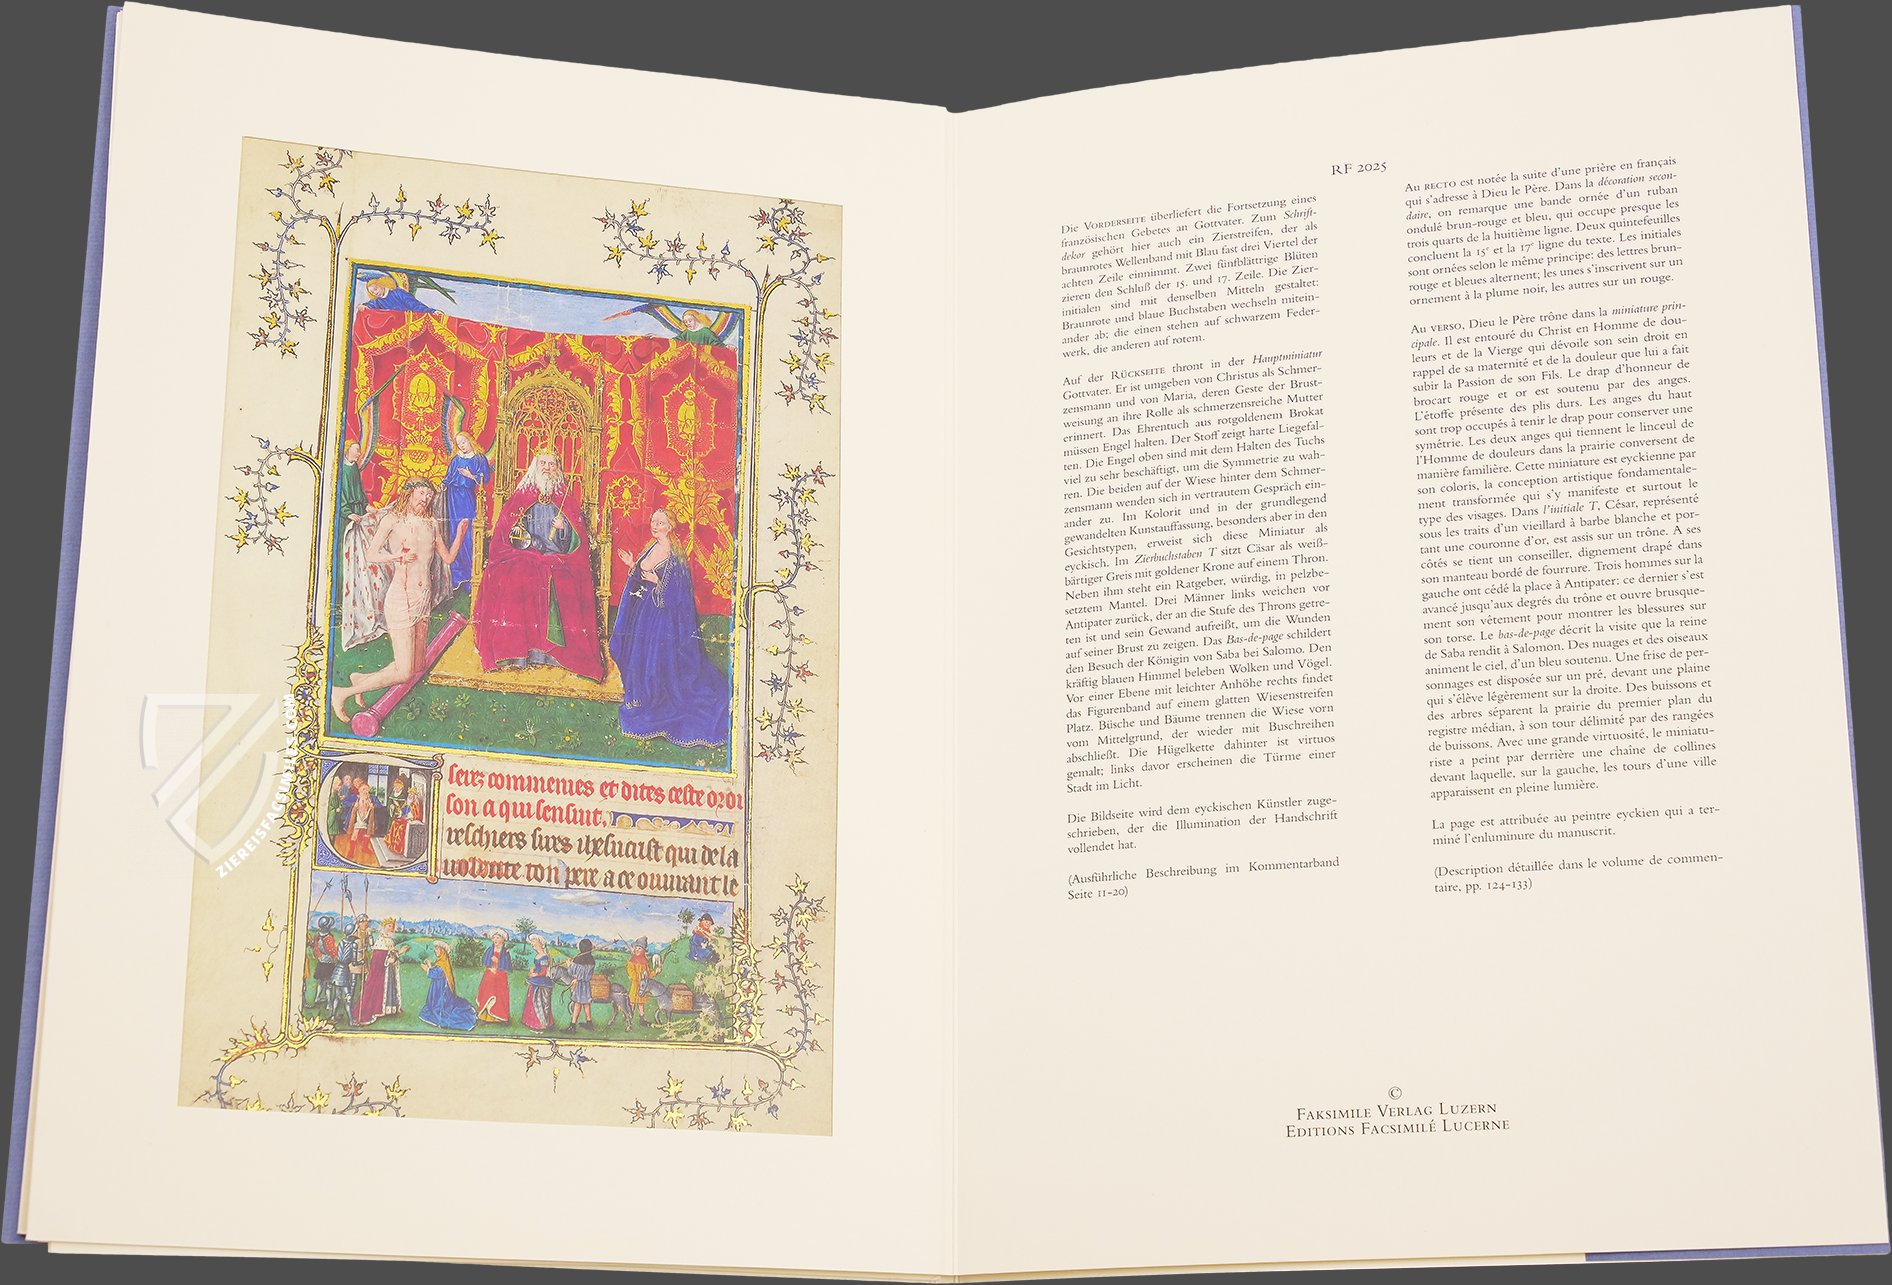 serez commenies et dites ceste oroi
son a qui sensuit.
reschiers sires ihesucrist qui de la
uolente ton pere a ce ouurant le
ZIEREISFACSIMILES.COM
RF 2025
Die VORDERSEITE überliefert die Fortsetzung eines
französischen Gebetes an Gottvater. Zum Schrift-
dekor gehört hier auch ein Zierstreifen, der als
braunrotes Wellenband mit Blau fast drei Viertel der
achten Zeile einnimmt. Zwei fünfblättrige Blüten
zieren den Schluß der 15. und 17. Zeile. Die Zier-
initialen sind mit denselben Mitteln gestaltet:
Braunrote und blaue Buchstaben wechseln mitein-
ander ab; die einen stehen auf schwarzem Feder-
werk, die anderen auf rotem.
Auf der RÜCKSEITE thront in der Hauptminiatur
Gottvater. Er ist umgeben von Christus als Schmer-
zensmann und von Maria, deren Geste der Brust-
weisung an ihre Rolle als schmerzensreiche Mutter
erinnert. Das Ehrentuch aus rotgoldenem Brokat
müssen Engel halten. Der Stoff zeigt harte Liegefal-
ten. Die Engel oben sind mit dem Halten des Tuchs
viel zu sehr beschäftigt, um die Symmetrie zu wah-
ren. Die beiden auf der Wiese hinter dem Schmer-
zensmann wenden sich in vertrautem Gespräch ein-
ander zu. Im Kolorit und in der grundlegend
gewandelten Kunstauffassung, besonders aber in den
Gesichtstypen, erweist sich diese Miniatur als
eyckisch. Im Zierbuchstaben T sitzt Cäsar als weiß-
bärtiger Greis mit goldener Krone auf einem Thron.
Neben ihm steht ein Ratgeber, würdig, in pelzbe-
setztem Mantel. Drei Männer links weichen vor
Antipater zurück, der an die Stufe des Throns getre-
ten ist und sein Gewand aufreißt, um die Wunden
auf seiner Brust zu zeigen. Das Bas-de-page schildert
den Besuch der Königin von Saba bei Salomo. Den
kräftig blauen Himmel beleben Wolken und Vögel.
Vor einer Ebene mit leichter Anhöhe rechts findet
das Figurenband auf einem glatten Wiesenstreifen
Platz. Büsche und Bäume trennen die Wiese vorn
vom Mittelgrund, der wieder mit Buschreihen
abschließt. Die Hügelkette dahinter ist virtuos
gemalt; links davor erscheinen die Türme einer
Stadt im Licht.
Die Bildseite wird dem eyckischen Künstler zuge-
schrieben, der die Illumination der Handschrift
vollendet hat.
(Ausführliche Beschreibung im Kommentarband
Seite 11-20)
Au RECTO est notée la suite d'une prière en français
qui s'adresse à Dieu le Père. Dans la décoration secon-
daire, on remarque une bande ornée d'un ruban
ondulé brun-rouge et bleu, qui occupe presque les
trois quarts de la huitième ligne. Deux quintefeuilles
concluent la 15e et la 17e ligne du texte. Les initiales
sont ornées selon le même principe: des lettres brun-
rouge et bleues alternent; les unes s'inscrivent sur un
ornement à la plume noir, les autres sur un rouge.
Au VERSO, Dieu le Père trône dans la miniature prin-
cipale. Il est entouré du Christ en Homme de dou-
leurs et de la Vierge qui dévoile son sein droit en
rappel de sa maternité et de la douleur que lui a fait
subir la Passion de son Fils. Le drap d'honneur de
brocart rouge et or est soutenu par des anges.
L'étoffe présente des plis durs. Les anges du haut
sont trop occupés à tenir le drap pour conserver une
symétrie. Les deux anges qui tiennent le linceul de
l'Homme de douleurs dans la prairie conversent de
manière familière. Cette miniature est eyckienne par
son coloris, la conception artistique fondamentale-
ment transformée qui s'y manifeste et surtout le
type des visages. Dans l'initiale T, César, représenté
sous les traits d'un vieillard à barbe blanche et por-
tant une couronne d'or, est assis sur un trône. A ses
côtés se tient un conseiller, dignement drapé dans
son manteau bordé de fourrure. Trois hommes sur la
gauche ont cédé la place à Antipater: ce dernier s'est
avancé jusqu'aux degrés du trône et ouvre brusque-
ment son vêtement pour montrer les blessures sur
son torse. Le bas-de-page décrit la visite que la reine
de Saba rendit à Salomon. Des nuages et des oiseaux
animent le ciel, d'un bleu soutenu. Une frise de per-
sonnages est disposée sur un pré, devant une plaine
qui s'élève légèrement sur la droite. Des buissons et
des arbres séparent la prairie du premier plan du
registre médian, à son tour délimité par des rangées
de buissons. Avec une grande virtuosité, le miniatu-
riste a peint par derrière une chaîne de collines
devant laquelle, sur la gauche, les tours d'une ville
apparaissent en pleine lumière.
La page est attribuée au peintre eyckien qui a ter-
miné l'enluminure du manuscrit.
(Description détaillée dans le volume de commen-
taire, pp. 124-133)
©
FAKSIMILE VERLAG LUZERN
EDITIONS FACSIMILÉ LUCERNE